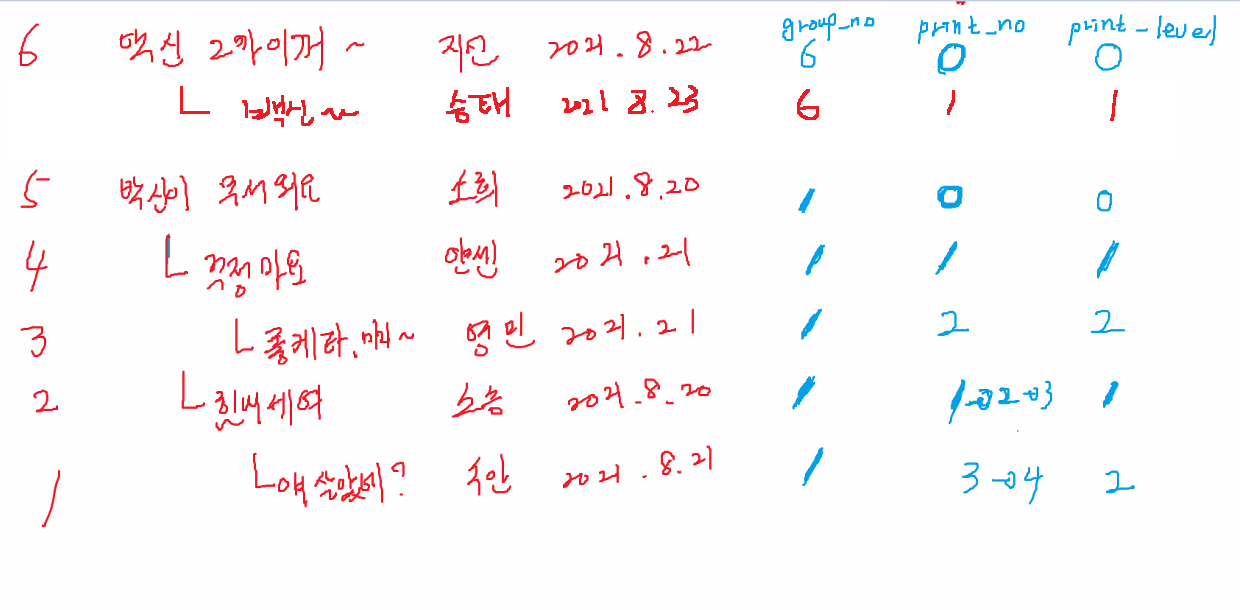 group_no print_no print-level
6 2차이꺼~ 지민 2021.8.22 6 0 0
ㄴ 백신~ 송태 2021 8.23 6 1 1
5 백신이 무서워요 소희 2021.8.20 1 0 0
4 ㄴ 걱정마요 얀센 2021.21 1 1 1
3 ㄴ 영민 2021.21 1 2 2
2 ㄴ 소송 2021.8.20 1 1→2→3 1
1 ㄴ 수안 2021.8.21 1 3→4 2